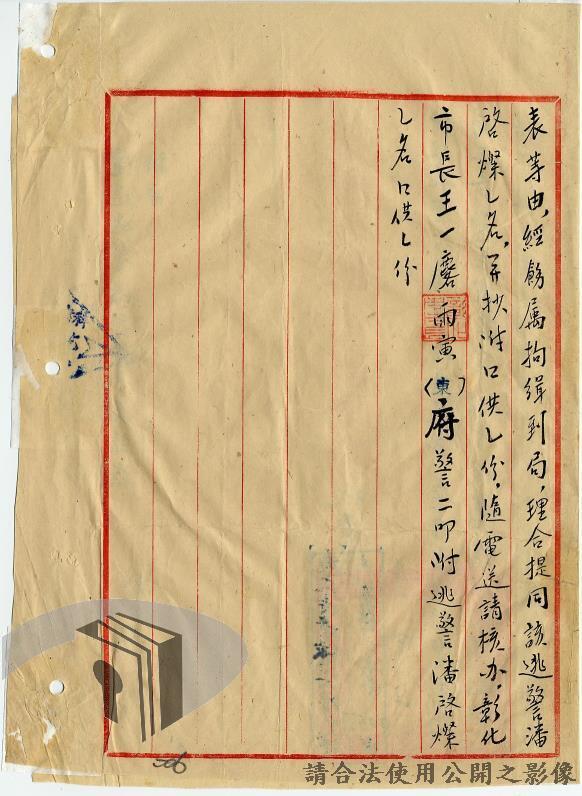 表等由,經飭属拘緝到局,理合提同該逃警潘
啓燦乚名,并抄附口供乚份,隨電送請核办,彰化
市長王一麐丙寅(東)府警二叩附逃警潘啓燦
乚名口供乚份
206
請合法使用公開之影像